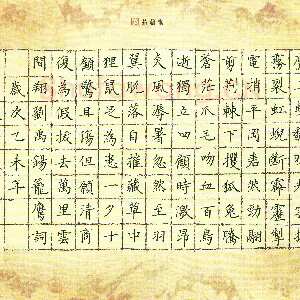 霧裂虹蜺斷霹靂掣
電捎平岡砉然勁翮
剪荊棘下攫狐兔騰
蒼茫爪毛吻血百鳥
逝獨立四顧時激昂
炎風溽暑忽然至羽
翼脫落自摧藏草中
狸鼠足為患一夕十
顧驚且傷但願清商
復為假拔去萬里雲
間翔劉禹錫籠鷹詞
歲次乙未年